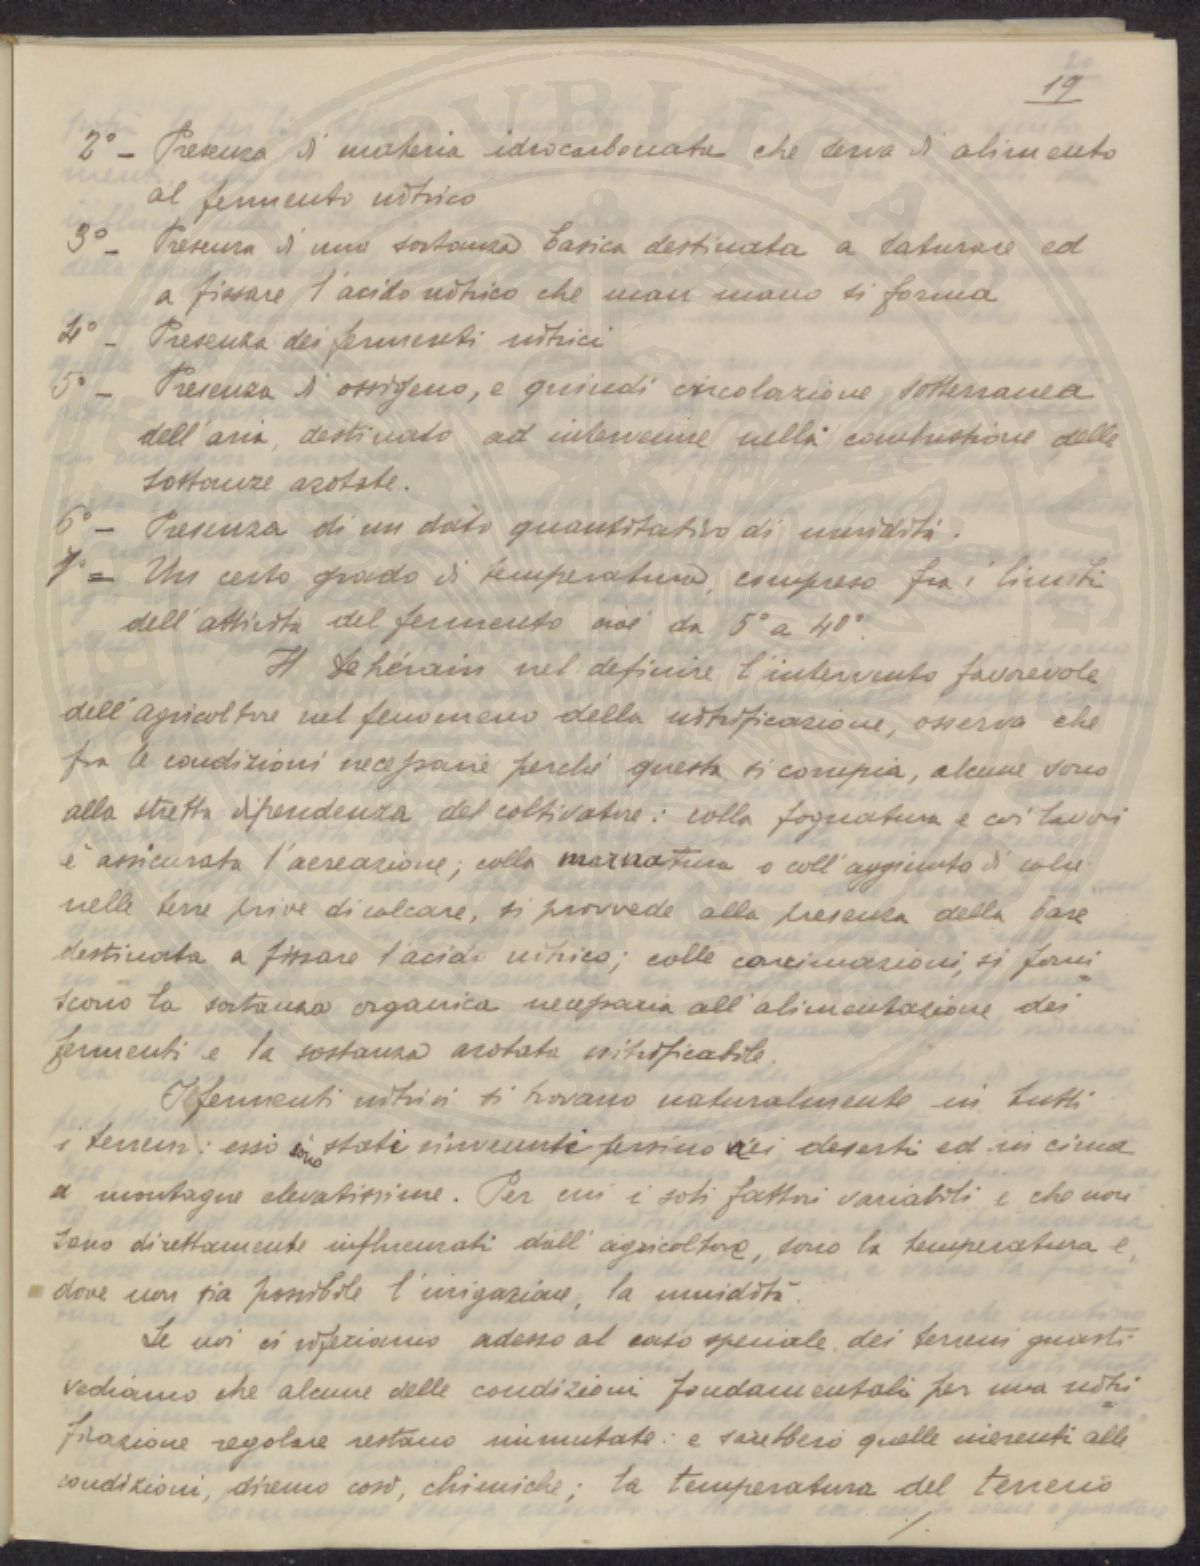 19
2° - Presenza di materia idrocarbonata che serva di alimento
al fermento nitrico
3° - Presenza di una sostanza basica destinata a saturare ed
a fissare l'acido nitrico che man mano si forma
4° - Presenza dei fermenti nitrici
5° - Presenza di ossigeno, e quindi circolazione sotterranea
dell'aria, destinato ad intervenire nella combustione delle
sostanze azotate.
6° - Presenza di un dato quantitativo di umidità.
7° = Un certo grado di temperatura, compreso fra i limiti
dell'attività del fermento cioè da 5° a 40°.
Il Dehérain nel definire l'intervento favorevole
dell'agricoltore nel fenomeno della nitrificazione, osserva che
fra le condizioni necessarie perché questa si compia, alcune sono
alla stretta dipendenza del coltivatore: colla fognatura e coi lavori
è assicurata l'aereazione; colla marnatura o coll'aggiunta di calce
nelle terre prive di calcare, si provvede alla presenza della base
destinata a fissare l'acido nitrico; colle concimazioni, si forni=
scono la sostanza organica necessaria all'alimentazione dei
fermenti e la sostanza azotata nitrificabile.
I fermenti nitrici si trovano naturalmente in tutti
i terreni: essi sono stati rinvenuti persino nei deserti ed in cima
a montagne elevatissime. Per cui i soli fattori variabili e che non
sono direttamente influenzati dall'agricoltore, sono la temperatura e,
dove non sia possibile l'irrigazione, la umidità.
Se noi ci riferiamo adesso al caso speciale dei terreni guasti
vediamo che alcune delle condizioni fondamentali per una nitri=
ficazione regolare restano immutate: e sarebbero quelle inerenti alle
condizioni, diremo così, chimiche; la temperatura del terreno
./.